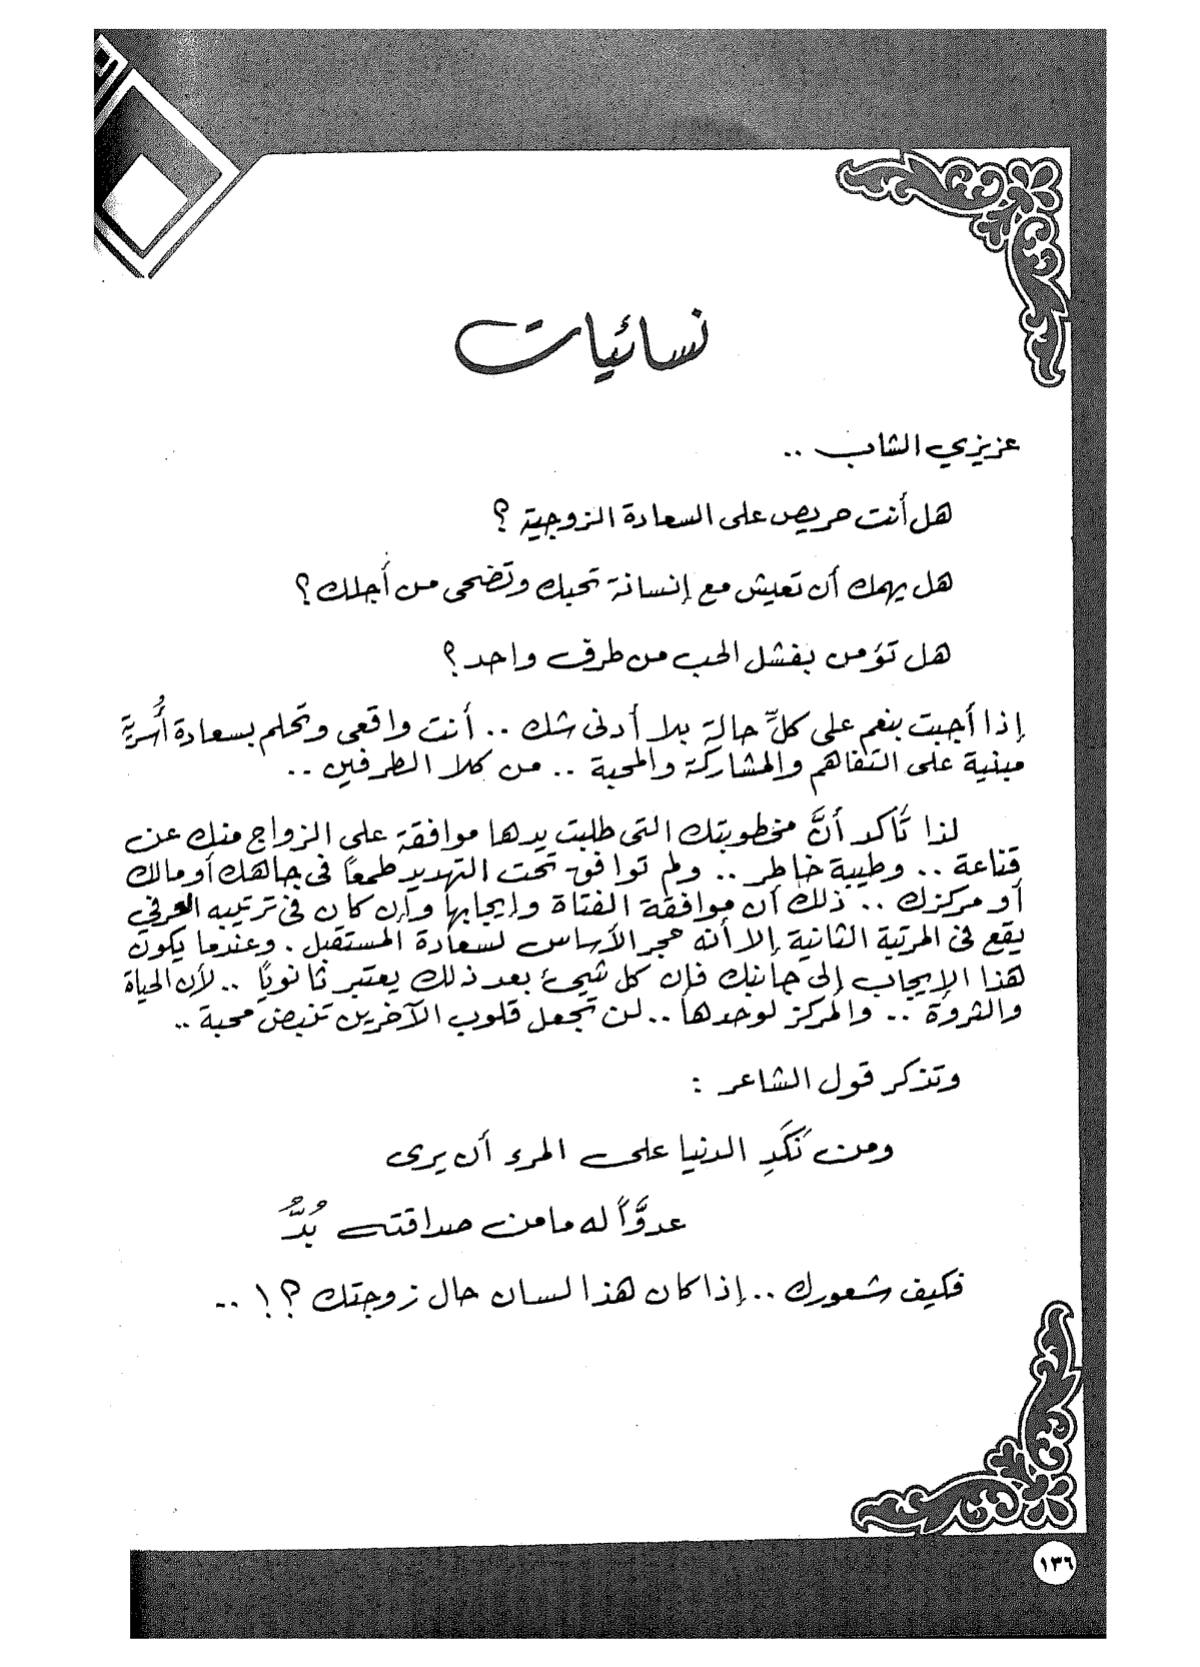 نسائيات
عزيزي الشاب ..
هل أنت حريص على السعادة الزوجية ؟
هل يهمك أن تعيش مع إنسانة تحبك وتضحى من أجلك ؟
هل تؤمن بفشل الحب من طرف واحد ؟
إذا أجبت بنعم على كلِّ حالة بلا أدنى شك .. أنت واقعى وتحلم بسعادة أُسريَّة
مبنية على التفاهم والمشاركة والمحبة .. من كلا الطرفين ..
لذا تأكد أنَّ مخطوبتك التى طلبت يدها موافقة على الزواج منك عن
قناعة .. وطيبة خاطر .. ولم توافق تحت التهديد طمعاً فى جاهك أو مالك
أو مركزك .. ذلك أن موافقة الفتاة وإيجابها وإن كان فى ترتيبه العرفي
يقع فى المرتبة الثانية إلا أنه حجر الأساس لسعادة المستقبل . وعندما يكون
هذا الإيجاب إلى جانبك فإن كل شيئ بعد ذلك يعتبر ثانوياً .. لأن الحياة
والثروة .. والمركز لوحدها .. لن تجعل قلوب الآخرين تنبض محبة ..
وتذكر قول الشاعر :
ومن نَكَدِ الدنيا على المرء أن يرى
عدوَّاً له ما من صداقته بُدُّ
فكيف شعورك .. إذا كان هذا لسان حال زوجتك ؟! ..
١٣٦